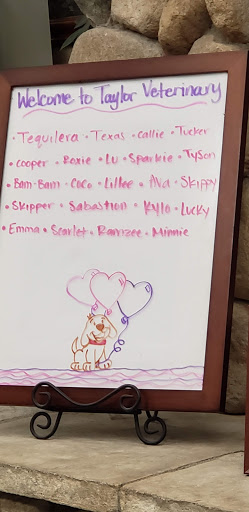 Welcome to Taylor Veterinary
• Tequilera • Texas • Callie • Tucker
• Cooper • Roxie • Lu • Sparkie • Tyson
• Bam-Bam • Coco • Lillee • Ava • Skippy
• Skipper • Sabastion • Kylo • Lucky
• Emma • Scarlet • Ramzee • Minnie